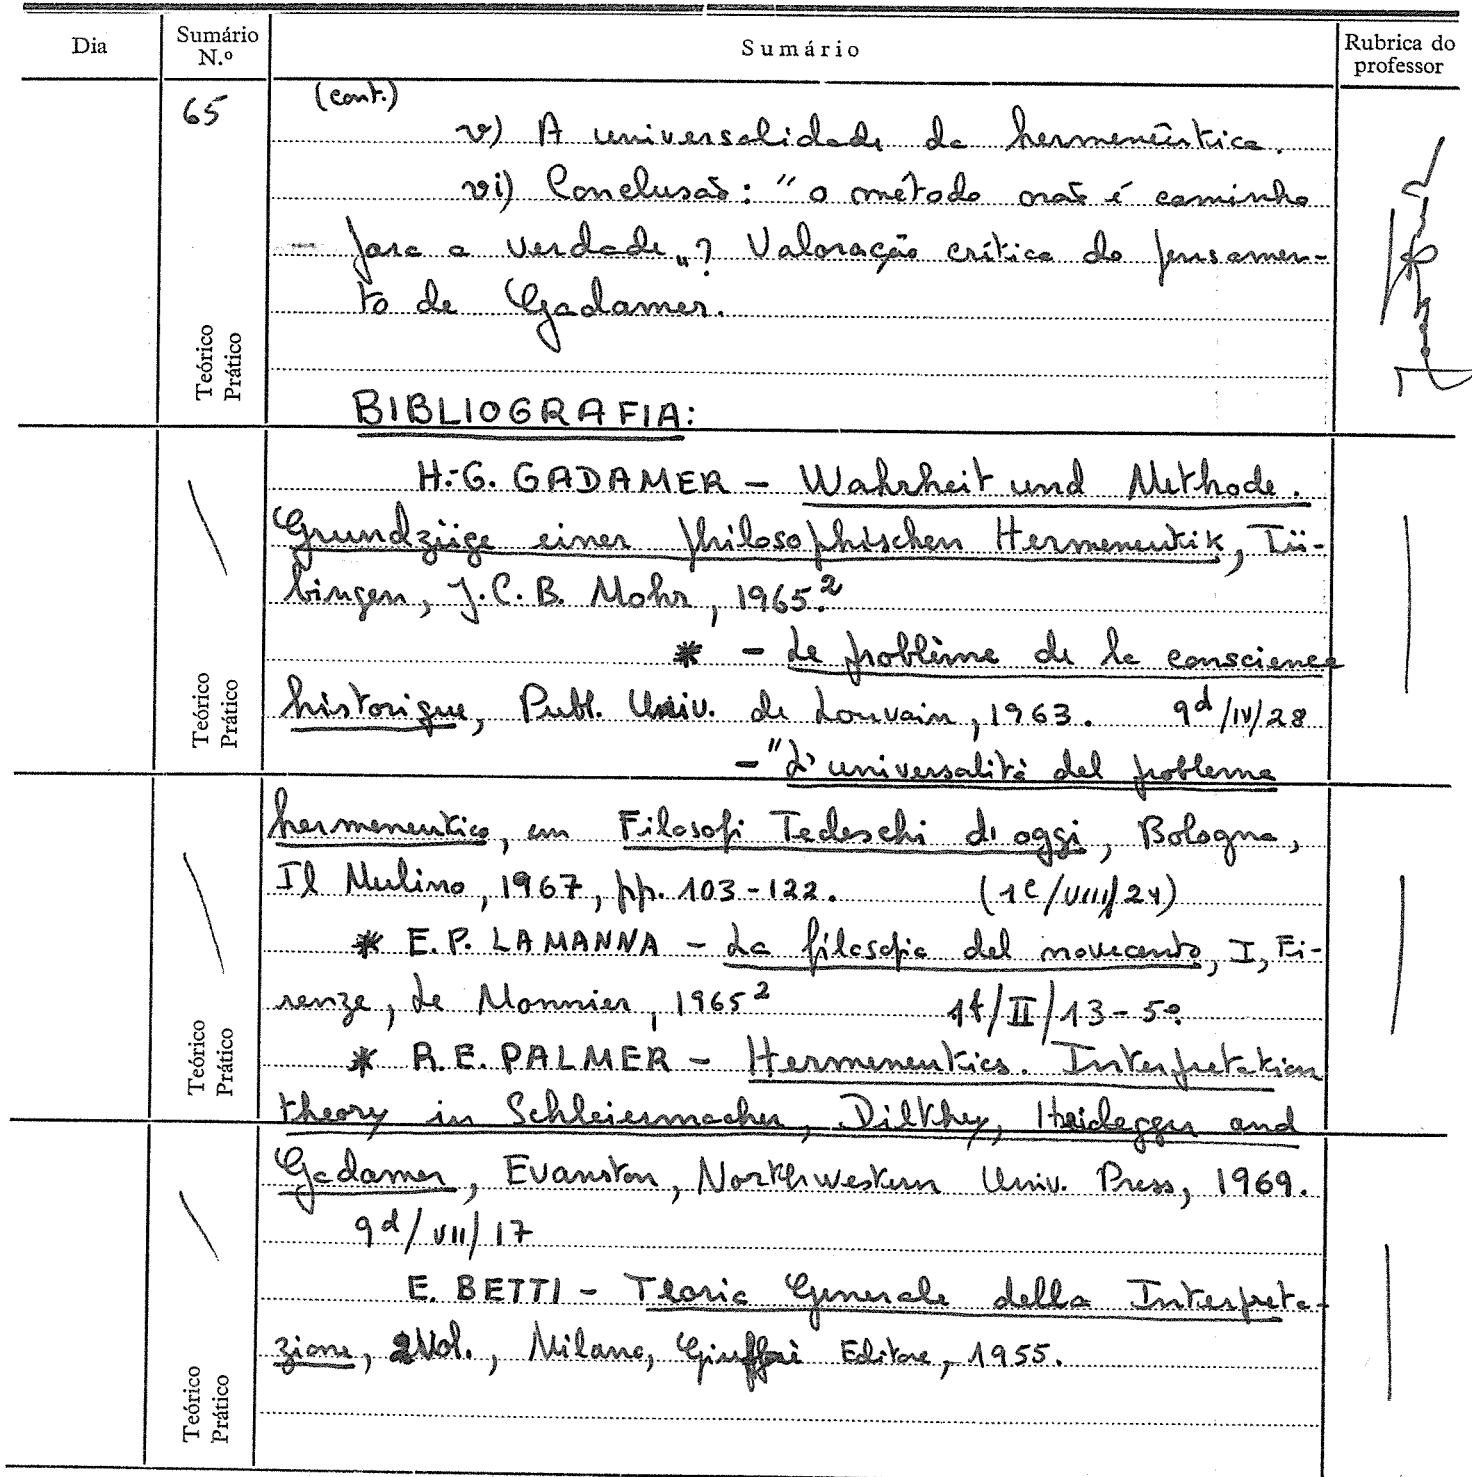 Dia
Sumário N.º
Sumário
Rubrica do professor
65
(cont.)
v) A universalidade da hermenêutica.
vi) Conclusão: "o método não é caminho
para a verdade"? Valoração crítica do pensamen-
to de Gadamer.
Teórico
Prático
BIBLIOGRAFIA:
H.-G. GADAMER – Wahrheit und Methode.
Grundzüge einer philosophischen Hermeneutik, Tü-
bingen, J.C.B. Mohr, 1965.²
* – Le problème de la conscience
historique, Publ. Univ. de Louvain, 1963. 9d/IV/28
Teórico
Prático
– "L'universalità del problema
hermeneutico, em Filosofi Tedeschi d'oggi, Bologna,
Il Mulino, 1967, pp. 103-122. (1c/VIII/24)
* E.P. LAMANNA – La filosofia del novecento, I, Fi-
renze, Le Monnier, 1965² 1f/II/13-5º
Teórico
Prático
* R.E. PALMER – Hermeneutics. Interpretation
theory in Schleiermacher, Dilthey, Heidegger and
Gadamer, Evanston, Northwestern Univ. Press, 1969.
9d/VII/17
E. BETTI – Teoria Generale della Interpreta-
zione, 2 Vol., Milano, Giuffrè Editore, 1955.
Teórico
Prático